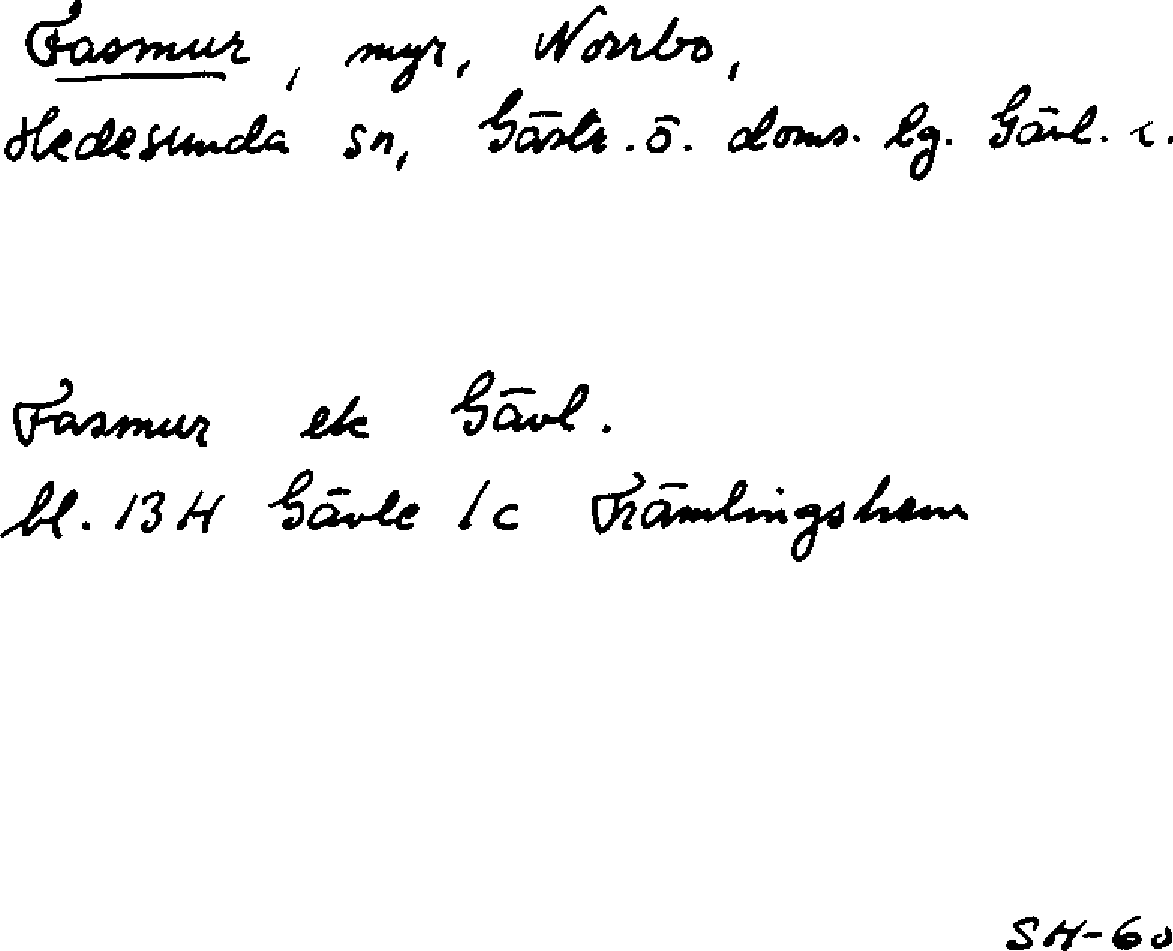 Fasmur, myr, Norrbo,
Hedesunda sn, Gästr. ö. doms. lg. Gävl. l.
Fasmur ek Gävl.
bl. 13H Gävle 1c Främlingshem
SH-60